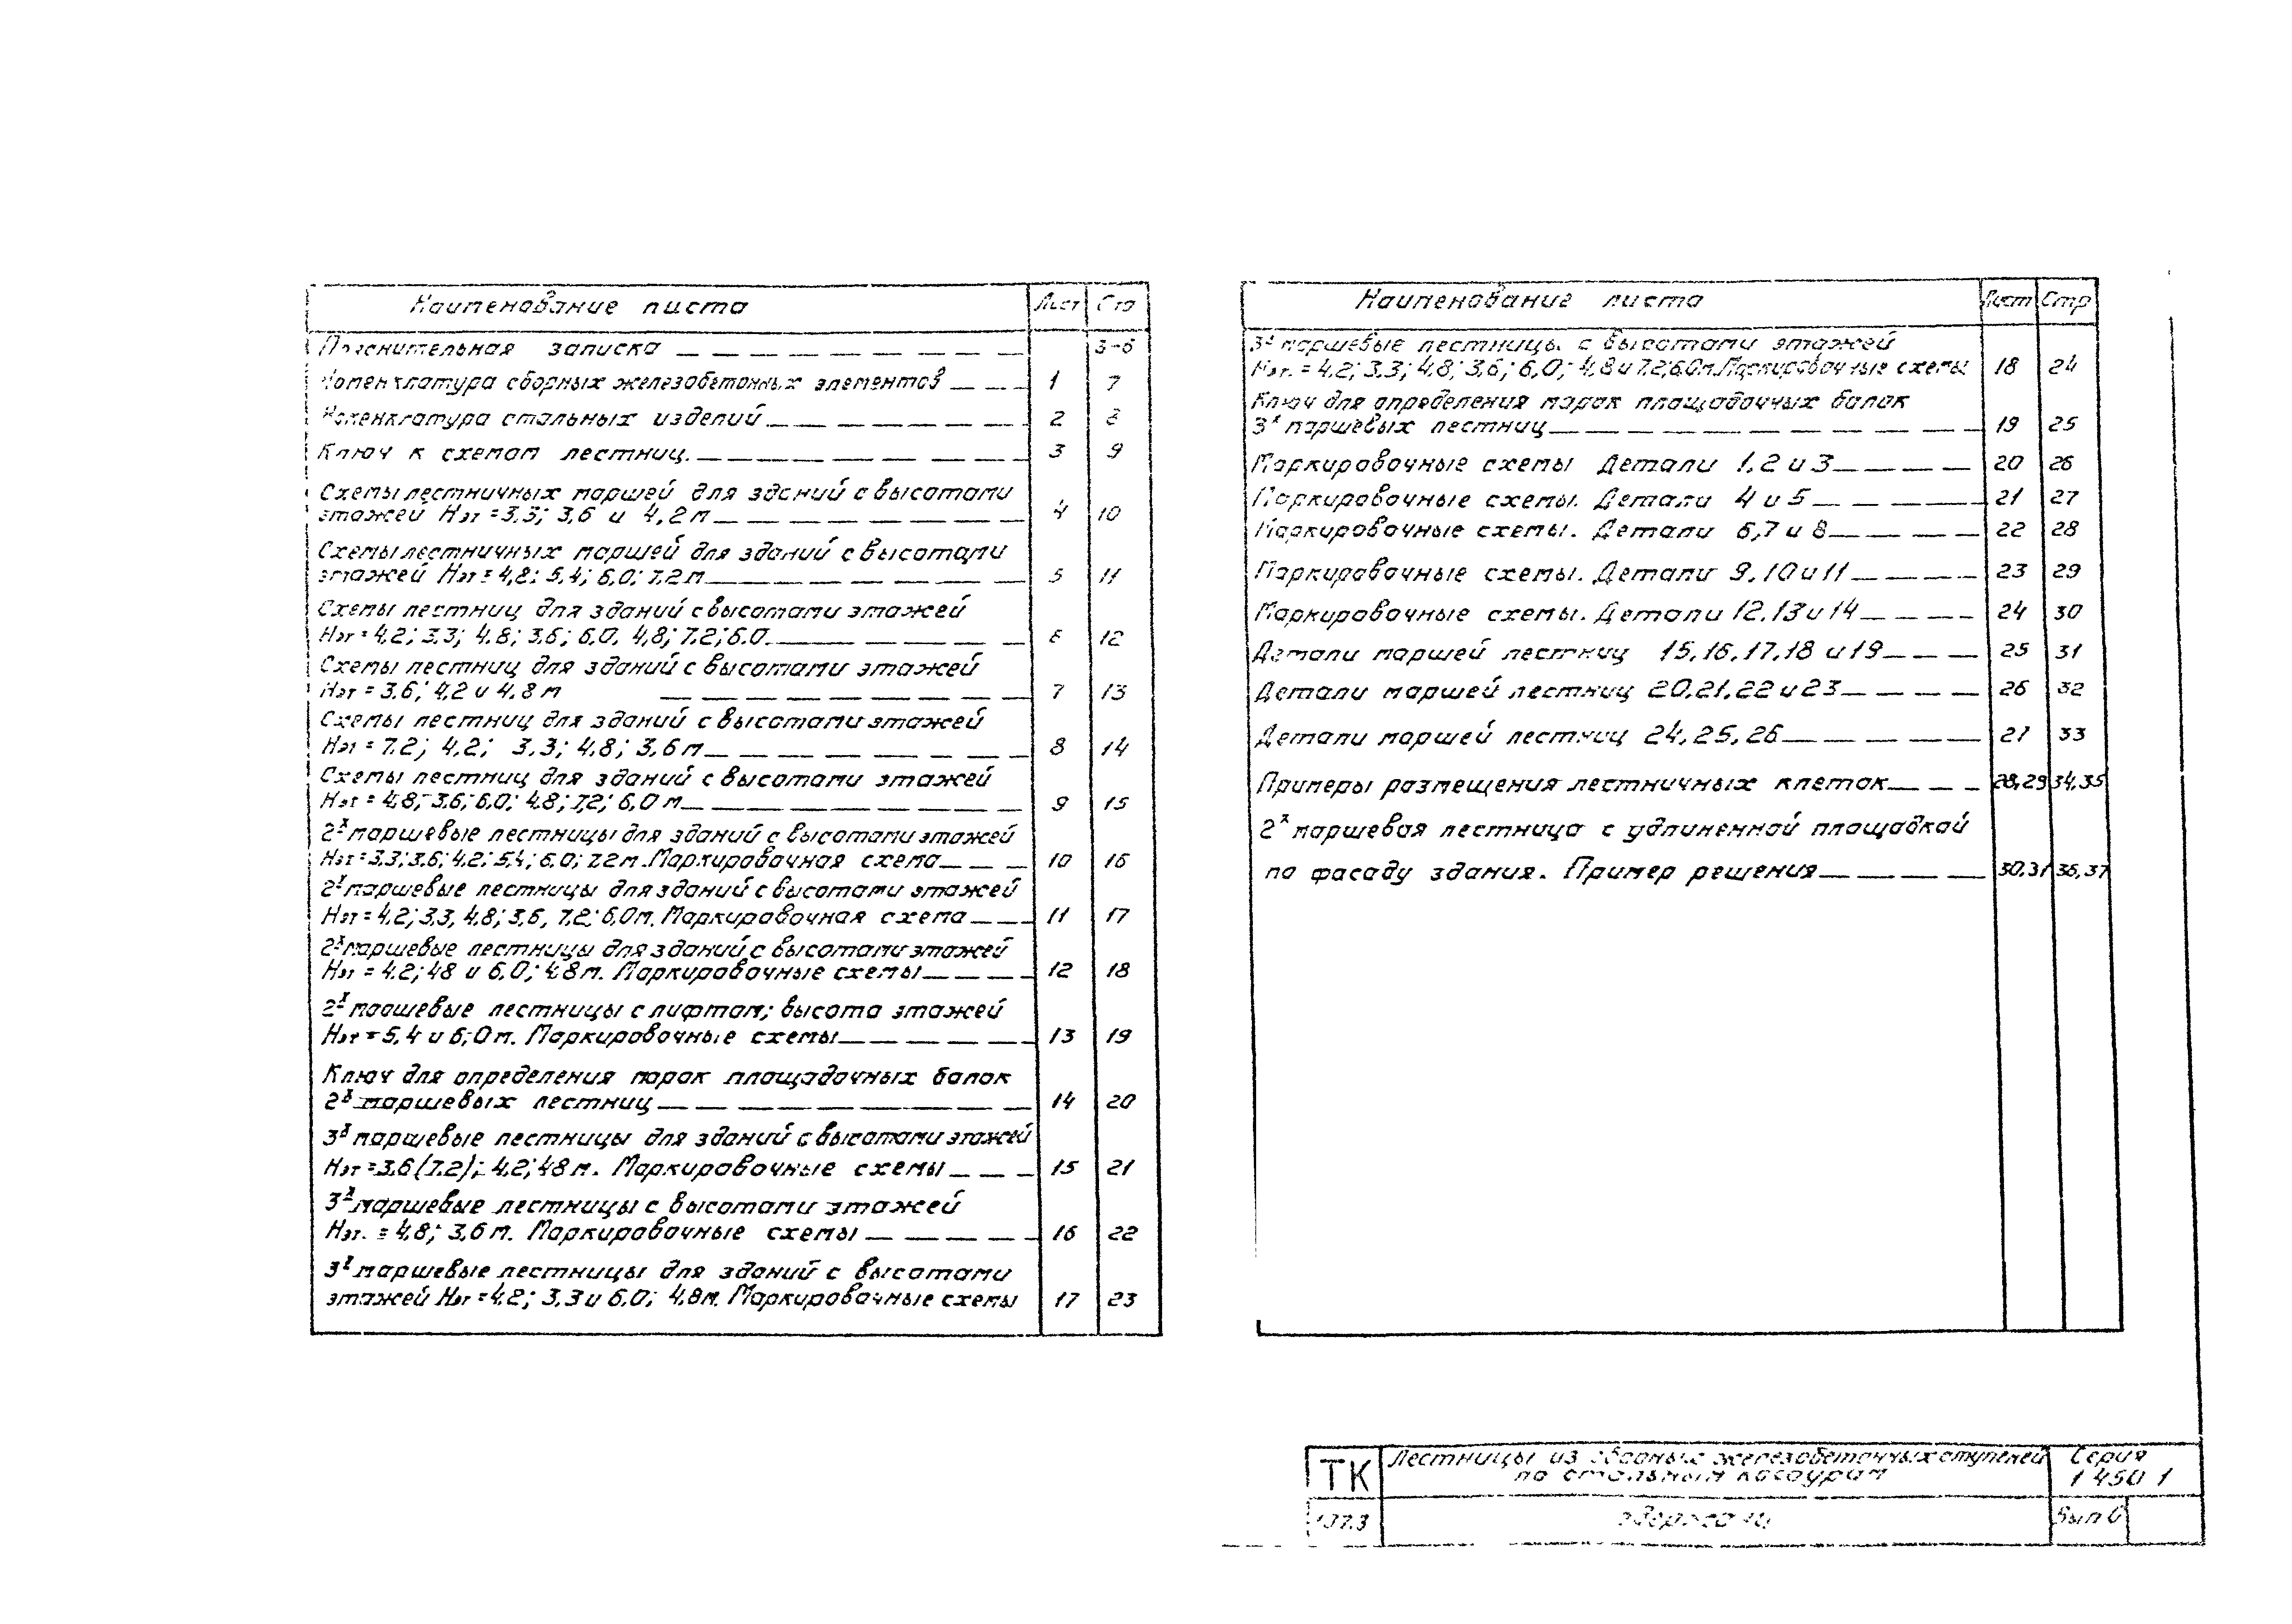 Наименование листа Лист Стр
Пояснительная записка 3-6
Номенклатура сборных железобетонных элементов 1 7
Номенклатура стальных изделий 2 8
Ключ к схемам лестниц. 3 9
Схемы лестничных маршей для зданий с высотами
этажей Нэт = 3,3; 3,6 и 4,2 м 4 10
Схемы лестничных маршей для зданий с высотами
этажей Нэт = 4,8; 5,4; 6,0; 7,2 м 5 11
Схемы лестниц для зданий с высотами этажей
Нэт = 4,2; 3,3; 4,8; 3,6; 6,0, 4,8; 7,2; 6,0. 6 12
Схемы лестниц для зданий с высотами этажей
Нэт = 3,6; 4,2 и 4,8 м 7 13
Схемы лестниц для зданий с высотами этажей
Нэт = 7,2; 4,2; 3,3; 4,8; 3,6 м 8 14
Схемы лестниц для зданий с высотами этажей
Нэт = 4,8; 3,6; 6,0; 4,8; 7,2; 6,0 м 9 15
2х маршевые лестницы для зданий с высотами этажей
Нэт = 3,3; 3,6; 4,2; 5,4; 6,0; 7,2 м. Маркировочная схема 10 16
2х маршевые лестницы для зданий с высотами этажей
Нэт = 4,2; 3,3, 4,8; 3,6, 7,2; 6,0 м. Маркировочная схема 11 17
2х маршевые лестницы для зданий с высотами этажей
Нэт = 4,2; 4,8 и 6,0; 4,8 м. Маркировочные схемы 12 18
2х маршевые лестницы с лифтом; высота этажей
Нэт = 5,4 и 6,0 м. Маркировочные схемы 13 19
Ключ для определения марок площадочных балок
2х маршевых лестниц 14 20
3х маршевые лестницы для зданий с высотами этажей
Нэт = 3,6 (7,2); 4,2; 4,8 м. Маркировочные схемы 15 21
3х маршевые лестницы с высотами этажей
Нэт. = 4,8; 3,6 м. Маркировочные схемы 16 22
3х маршевые лестницы для зданий с высотами
этажей Нэт = 4,2; 3,3 и 6,0; 4,8 м. Маркировочные схемы 17 23
Наименование листа Лист Стр
3х маршевые лестницы с высотами этажей
Нэт. = 4,2; 3,3; 4,8; 3,6; 6,0; 4,8 и 7,2; 6,0 м. Маркировочные схемы 18 24
Ключ для определения марок площадочных балок
3х маршевых лестниц 19 25
Маркировочные схемы Детали 1, 2 и 3 20 26
Маркировочные схемы. Детали 4 и 5 21 27
Маркировочные схемы. Детали 6, 7 и 8 22 28
Маркировочные схемы. Детали 9, 10 и 11 23 29
Маркировочные схемы. Детали 12, 13 и 14 24 30
Детали маршей лестниц 15, 16, 17, 18 и 19 25 31
Детали маршей лестниц 20, 21, 22 и 23 26 32
Детали маршей лестниц 24, 25, 26 27 33
Примеры размещения лестничных клеток 28,29 34,35
2х маршевая лестница с удлиненной площадкой
по фасаду здания. Пример решения 30,31 36,37
ТК Лестницы из сборных железобетонных ступеней Серия
по стальным косоурам 1 450 1
Вып 0